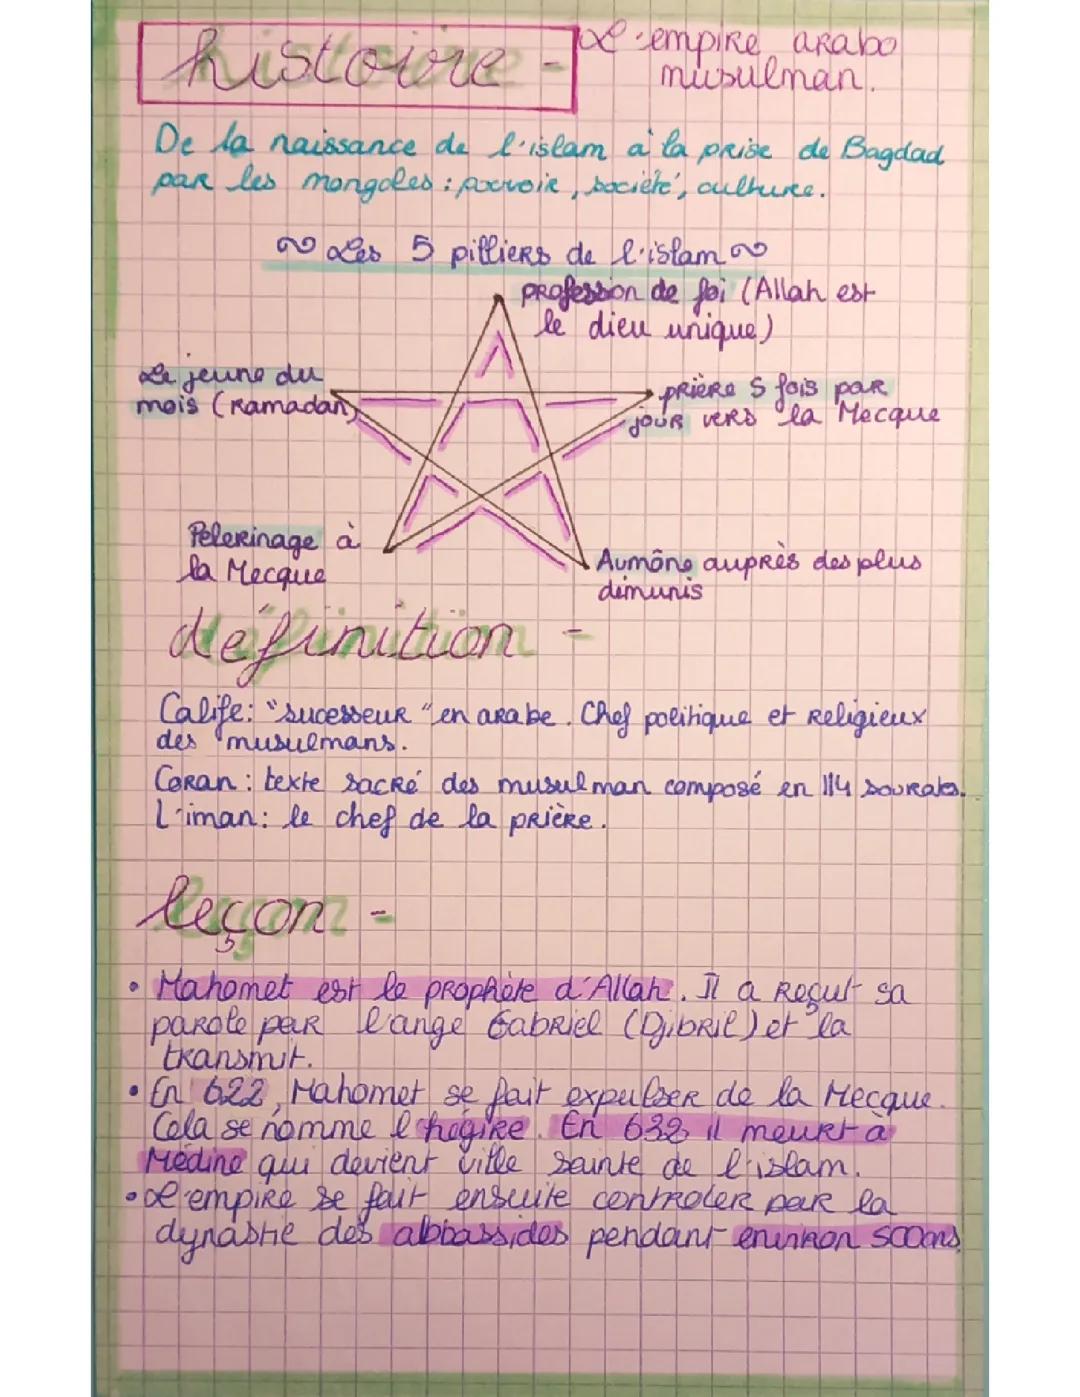 histoire -
L'empire arabo
musulman.
De la naissance de l'islam à la prise de Bagdad
par les mongoles : pouvoir, société, culture.
Les 5 pilliers de l'islam
profession de foi (Allah est
le dieu unique)
Le jeune du
mois (Ramadan)
prière 5 fois par
jour vers la Mecque
Pelerinage à
la Mecque
Aumône auprès des plus
dimunis
définition -
Calife: "sucesseur" en arabe. Chef politique et religieux
des musulmans.
Coran : texte sacré des musulman composé en 114 sourates.
L'iman: le chef de la prière.
leçon -
• Mahomet est le prophète d'Allah. Il a reçut sa
parole par l'ange Gabriel (Djibril) et la
transmit.
• En 622, Mahomet se fait expulser de la Mecque.
Cela se nomme l'hégire. En 632 il meurt à
Médine qui devient ville sainte de l'islam.
• L'empire se fait ensuite controler par la
dynastie des abbassides pendant environ 500ans